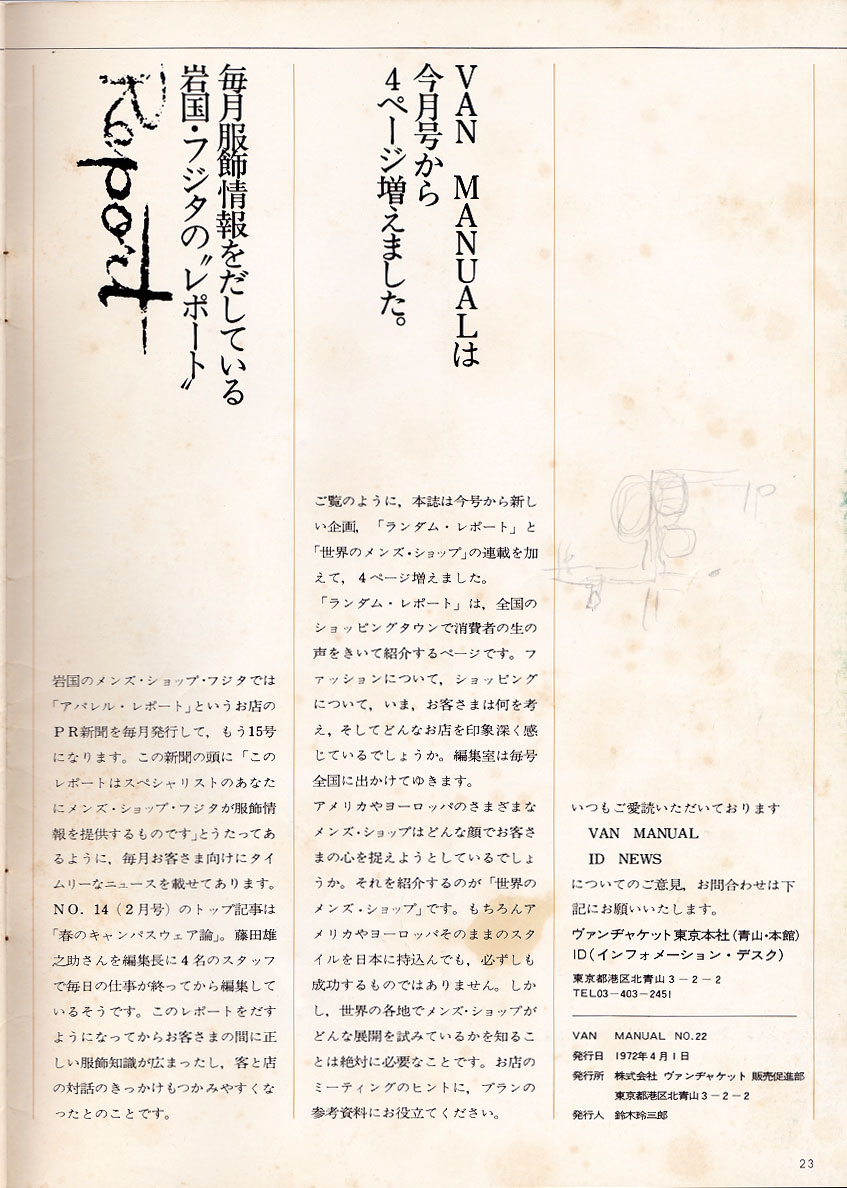 Report
毎月服飾情報をだしている
岩国・フジタの〝レポート〟
岩国のメンズ・ショップ・フジタでは
「アパレル・レポート」というお店の
ＰＲ新聞を毎月発行して，もう15号
になります。この新聞の頭に「この
レポートはスペシャリストのあなた
にメンズ・ショップ・フジタが服飾情
報を提供するものです」とうたってあ
るように，毎月お客さま向けにタイ
ムリーなニュースを載せてあります。
NO. 14（２月号）のトップ記事は
「春のキャンパスウェア論」。藤田雄
之助さんを編集長に４名のスタッフ
で毎日の仕事が終ってから編集して
いるそうです。このレポートをだす
ようになってからお客さまの間に正
しい服飾知識が広まったし，客と店
の対話のきっかけもつかみやすくな
ったとのことです。
VAN MANUALは
今月号から
4ページ増えました。
ご覧のように，本誌は今号から新し
い企画，「ランダム・レポート」と
「世界のメンズ・ショップ」の連載を加
えて，４ページ増えました。
「ランダム・レポート」は，全国の
ショッピングタウンで消費者の生の
声をきいて紹介するページです。フ
ァッションについて，ショッピング
について，いま，お客さまは何を考
え，そしてどんなお店を印象深く感
じているでしょうか。編集室は毎号
全国に出かけてゆきます。
アメリカやヨーロッパのさまざまな
メンズ・ショップはどんな顔でお客さ
まの心を捉えようとしているでしょ
うか。それを紹介するのが「世界の
メンズ・ショップ」です。もちろんア
メリカやヨーロッパそのままのスタ
イルを日本に持込んでも，必ずしも
成功するものではありません。しか
し，世界の各地でメンズ・ショップが
どんな展開を試みているかを知るこ
とは絶対に必要なことです。お店の
ミーティングのヒントに，プランの
参考資料にお役立てください。
いつもご愛読いただいております
VAN MANUAL
ID NEWS
についてのご意見，お問合わせは下
記にお願いいたします。
ヴァンヂャケット東京本社（青山・本館）
ID（インフォメーション・デスク）
東京都港区北青山３－２－２
TEL03－403－2451
VAN MANUAL NO.22
発行日 1972年４月１日
発行所 株式会社 ヴァンヂャケット 販売促進部
東京都港区北青山３－２－２
発行人 鈴木玲三郎
23